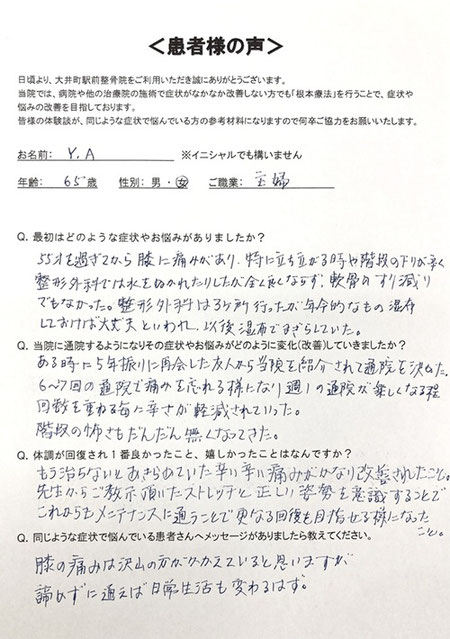 ＜患者様の声＞
日頃より、大井町駅前整骨院をご利用いただき誠にありがとうございます。
当院では、病院や他の治療院の施術で症状がなかなか改善しない方でも「根本療法」を行うことで、症状や
悩みの改善を目指しております。
皆様の体験談が、同じような症状で悩んでいる方の参考材料になりますので何卒ご協力をお願いいたします。
お名前： Y.A ※イニシャルでも構いません
年齢： 65歳 性別：男・女 ご職業： 主婦
Q. 最初はどのような症状やお悩みがありましたか？
55才を過ぎてから膝に痛みがあり、特に立ち上がる時や階段の下りが辛く
整形外科では水をぬかれたりしたが全く良くならず、軟骨のすり減り
でもなかった。整形外科は3ヶ所行ったが年令的なもの湿布
しておけば大丈夫といわれ、以後湿布でまぎらしていた。
Q. 当院に通院するようになりその症状やお悩みがどのように変化（改善）していきましたか？
ある時に5年振りに再会した友人から当院を紹介されて通院を決めた。
6〜7回の通院で痛みを忘れる様になり週1の通院が楽しくなる程
回数を重ねる毎に辛さが軽減されていった。
階段の怖さもだんだん無くなってきた。
Q. 体調が回復され1番良かったこと、嬉しかったことはなんですか？
もう治らないとあきらめていた辛い辛い痛みがかなり改善されたこと。
先生からご教示頂いたストレッチと正しい姿勢を意識することで
これからもメンテナンスに通うことで更なる回復も目指せる様になった
こと。
Q. 同じような症状で悩んでいる患者さんへメッセージがありましたら教えてください。
膝の痛みは沢山の方がかかえていると思いますが
諦めずに通えば日常生活も変わるはず。